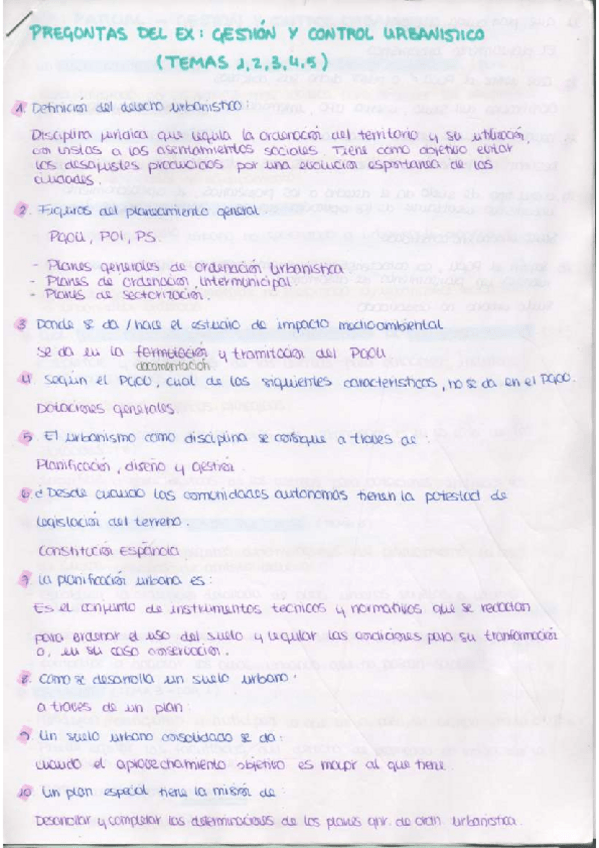 PREGONTAS DEL EX: GESTIÓN Y CONTROL URBANISTICO
(TEMAS 1,2,3,4,5)
1. Definición del derecho urbanístico:
Disciplina juridica que regula la ordenación del territorio y su utilización,
con vistas a los asentamientos sociales. Tiene como objetivo evitar
los desajustes producidos por una evolución espontanea de las
ciudades.
2. Figuras del planeamiento general.
PGOU, POI, PS.
- Planes generales de ordenación urbanistica
- Planes de ordenación intermunicipal
- Planes de sectorización.
3 Donde se da / hace el estudio de impacto medioambiental
se da en la formulación y tramitación del PGOU
documentación
4 Según el PGOU, cual de las siguientes caracteristicas, no se da en el PGOU.
Dotaciones generales
5. El urbanismo como disciplina se consigue a traves de:
Planificación, diseño y gestión.
6 ¿Desde cuando las comunidades autonomas tienen la potestad de
legislación del terreno.
Constitución Española
7. La planificación urbana es:
Es el conjunto de instrumentos tecnicos y normativos que se redactan
para ordenar el uso del suelo y regular las condiciones para su transformación
o, en su caso conservación.
8. Como se desarrolla un suelo urbano:
a traves de un plan:
9 Un suelo urbano consolidado se da:
cuando el aprovechamiento objetivo es mayor al que tiene.
10 Un plan especial tiene la misión de:
Desarrollar y completar las determinaciones de los planes gnr. de ordn. urbanistica.